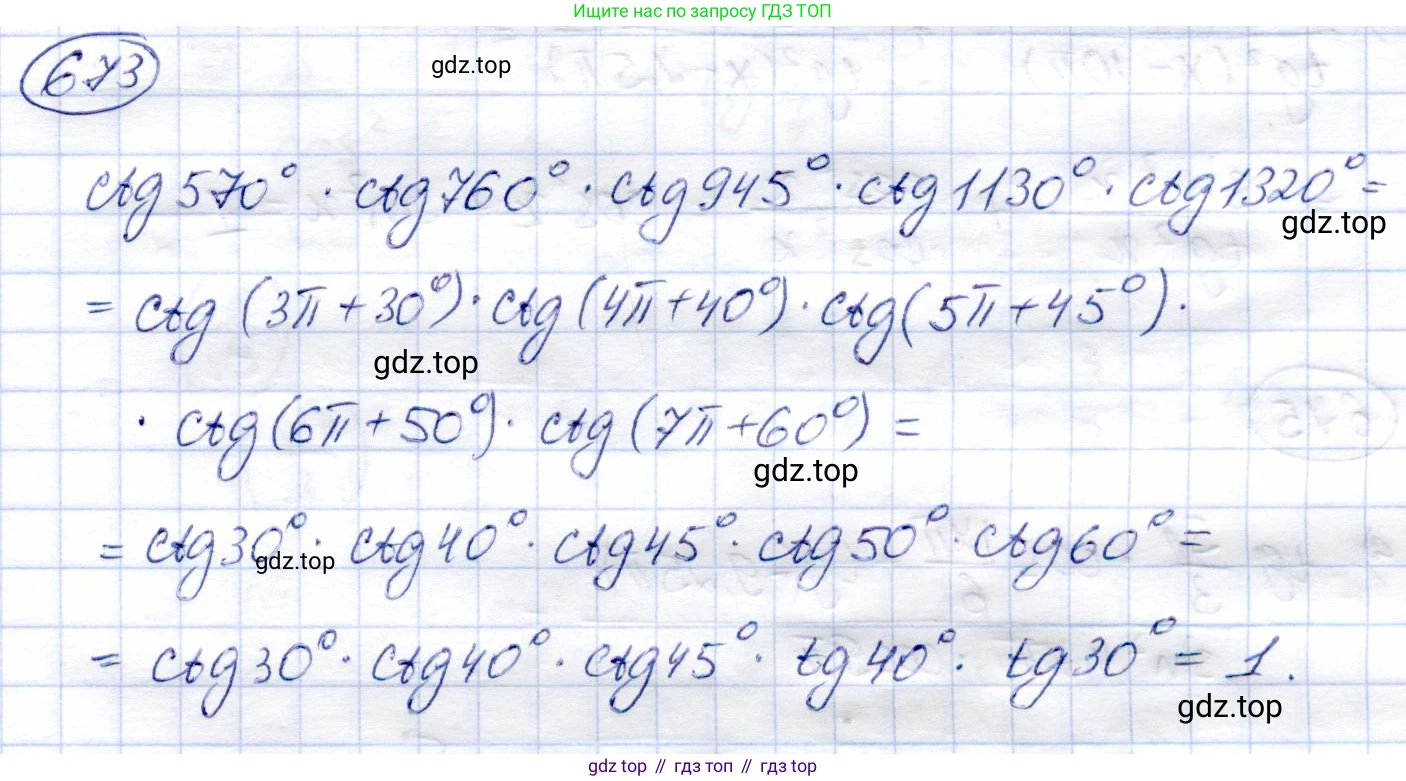 Ищите нас по запросу ГДЗ ТОП
673
gdz.top
ctg 570° · ctg 760° · ctg 945° · ctg 1130° · ctg 1320° =
gdz.top
= ctg (3π + 30°) · ctg (4π + 40°) · ctg (5π + 45°) ·
gdz.top
· ctg (6π + 50°) · ctg (7π + 60°) =
gdz.top
= ctg 30° · ctg 40° · ctg 45° · ctg 50° · ctg 60° =
gdz.top
= ctg 30° · ctg 40° · ctg 45° · tg 40° · tg 30° = 1.
gdz.top
gdz top // гдз топ // gdz top